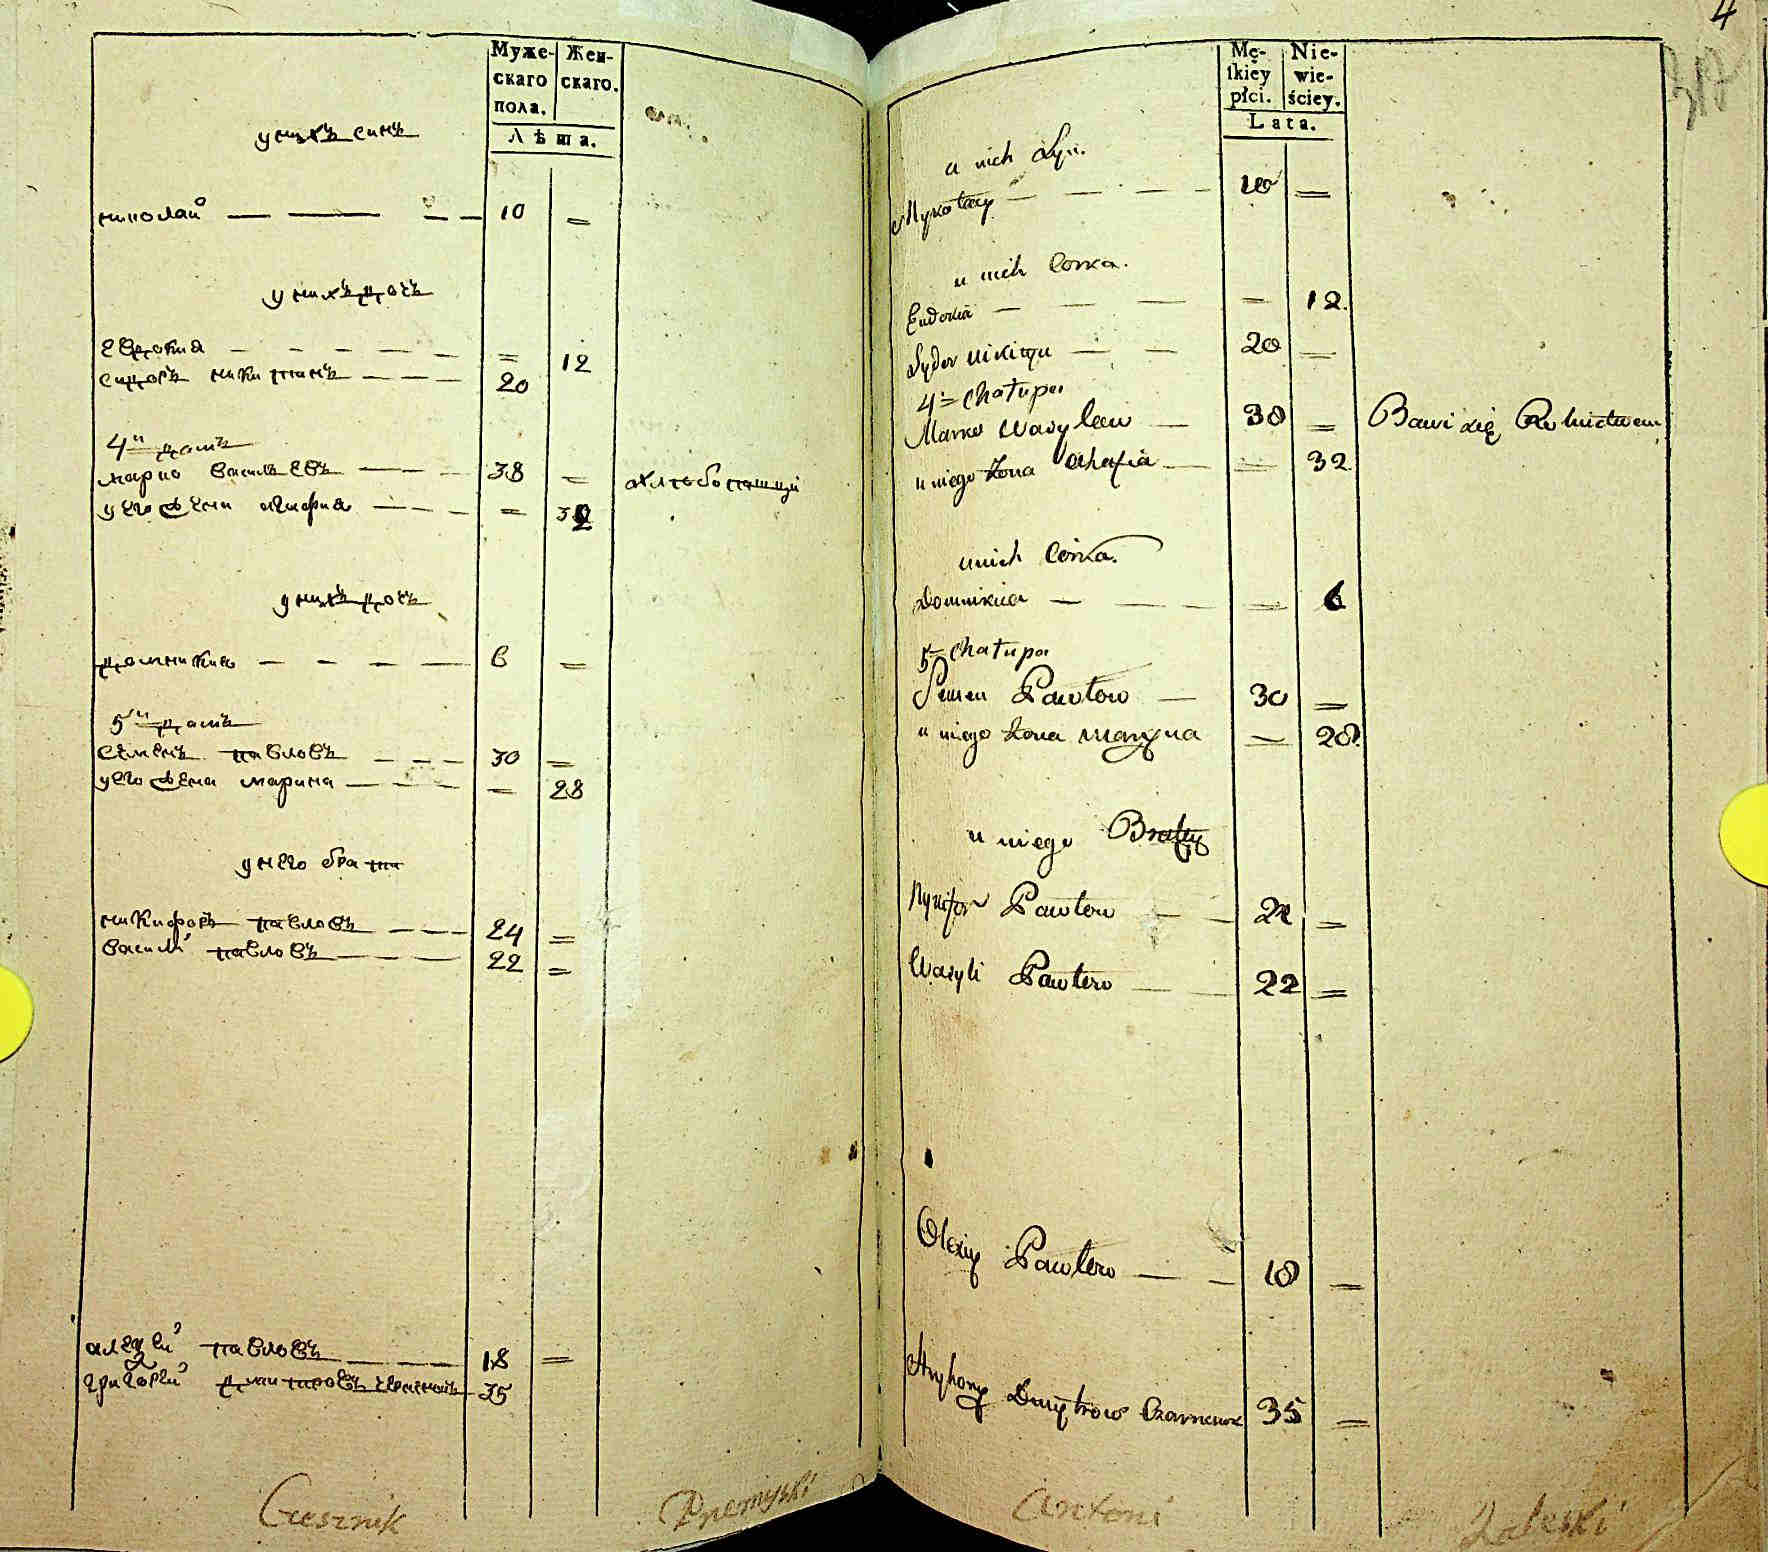 Муже-
скаго
пола.
Жен-
скаго.
Лѣта.
у нихъ синъ
николай 10 =
у нихъ дочь
евдокия = 12
сидоръ никитинъ 20
4й домъ
марко василевъ 38 =
у его жени агафия = 32
у нихъ дочь
домникия 6 =
5й домъ
семенъ павловъ 30 =
у его жена марина = 28
у него брати
никифоръ павловъ 24 =
василй павловъ 22 =
алексей павловъ 18 =
григорей дмитровъ 35
Czesznik Premyski
4
Mę-
ſkiey
płci.
Nie-
wie-
ściey.
Lata.
u nich Syn.
Mykołay 10 =
u nich Corka.
Eudokia = 12.
Sydor Nikityn 20 =
4 = Chałupa
Marko Wasylew 38 = Bawi się Rolnictwem
u niego Żona Ahafia = 32
u nich Corka.
Domnikia = 6
5 = Chałupa
Semen Pawłow 30 =
u niego Żona Maryna = 28.
u niego Braty
Nykifor Pawłow 24 =
Wasyli Pawłow 22 =
Olexiy Pawłow 18 =
Hryhory Dmytrow 35 =
Antoni Zaleski